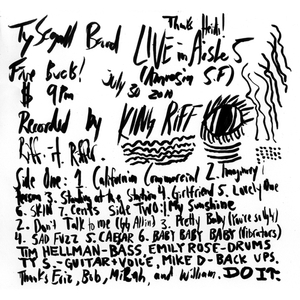 Thanks Heidi!
Ty Segall Band LIVE in Aisle 5
Five Bucks! (Amnesia S.F)
$ 9pm July 30 2011
Recorded by KING RIFF
Side One: 1. California Commercial 2. Imaginary
Person 3. Standing at the Station 4. Girlfriend 5. Lovely One
6. SKIN 7. Cents Side TWO: 1. My Sunshine
2. Don't Talk to me (GG Allin) 3. Pretty Baby
4. SAD FUZZ 5. CAESAR 6. BABY BABY BABY (Vibrators)
TIM HELLMAN - BASS EMILY ROSE - DRUMS
TY S. - GUITAR + VOICE, MIKE D - BACK UPS.
Thanks Eric, Bob, MiRah, and William. DO IT.